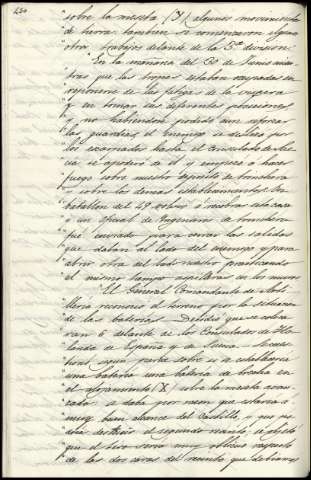 sobre la meseta (X) algunos movimientos
de tierra tambien se comenzaron algunos
otros trabajos delante de la 5ª division.
"En la mañana del 30 de Junio mien-
tras que las tropas estaban ocupadas en
reponerse de las fatigas de la vispera
y en tomar sus diferentes posiciones
y no habiendose podido aun reforzar
las guardias, el enemigo se deslizó por
los escarpados hasta el Consulado
se apoderó de él y empezó á hacer
fuego sobre nuestro deposito de trinchera
y sobre los demas establecimientos. Un
batallon del 49 volvió á recobrar esta casa
y un oficial de Yngenieros de trinchera
fué enviado para cerrar las salidas
que daban al lado del enemigo y para
abrir otra del lado nuestro practicando
al mismo tiempo aspilleras en los muros
"El General Comandante de Arti-
lleria reconoció el terreno por la situacion
de las baterias. Decidió que se coloca-
ran 6 delante de los Consulados de Ho-
landa de España y de Suecia.
sobre si se estableceria
una bateria de brecha en
el alojamiento (X) sobre la meseta
á muy buen alcance del Castillo, y que po-
dria destruir el segundo recinto,
que el tiro seria muy oblicuo respecto
de las dos caras del recinto que debiamos